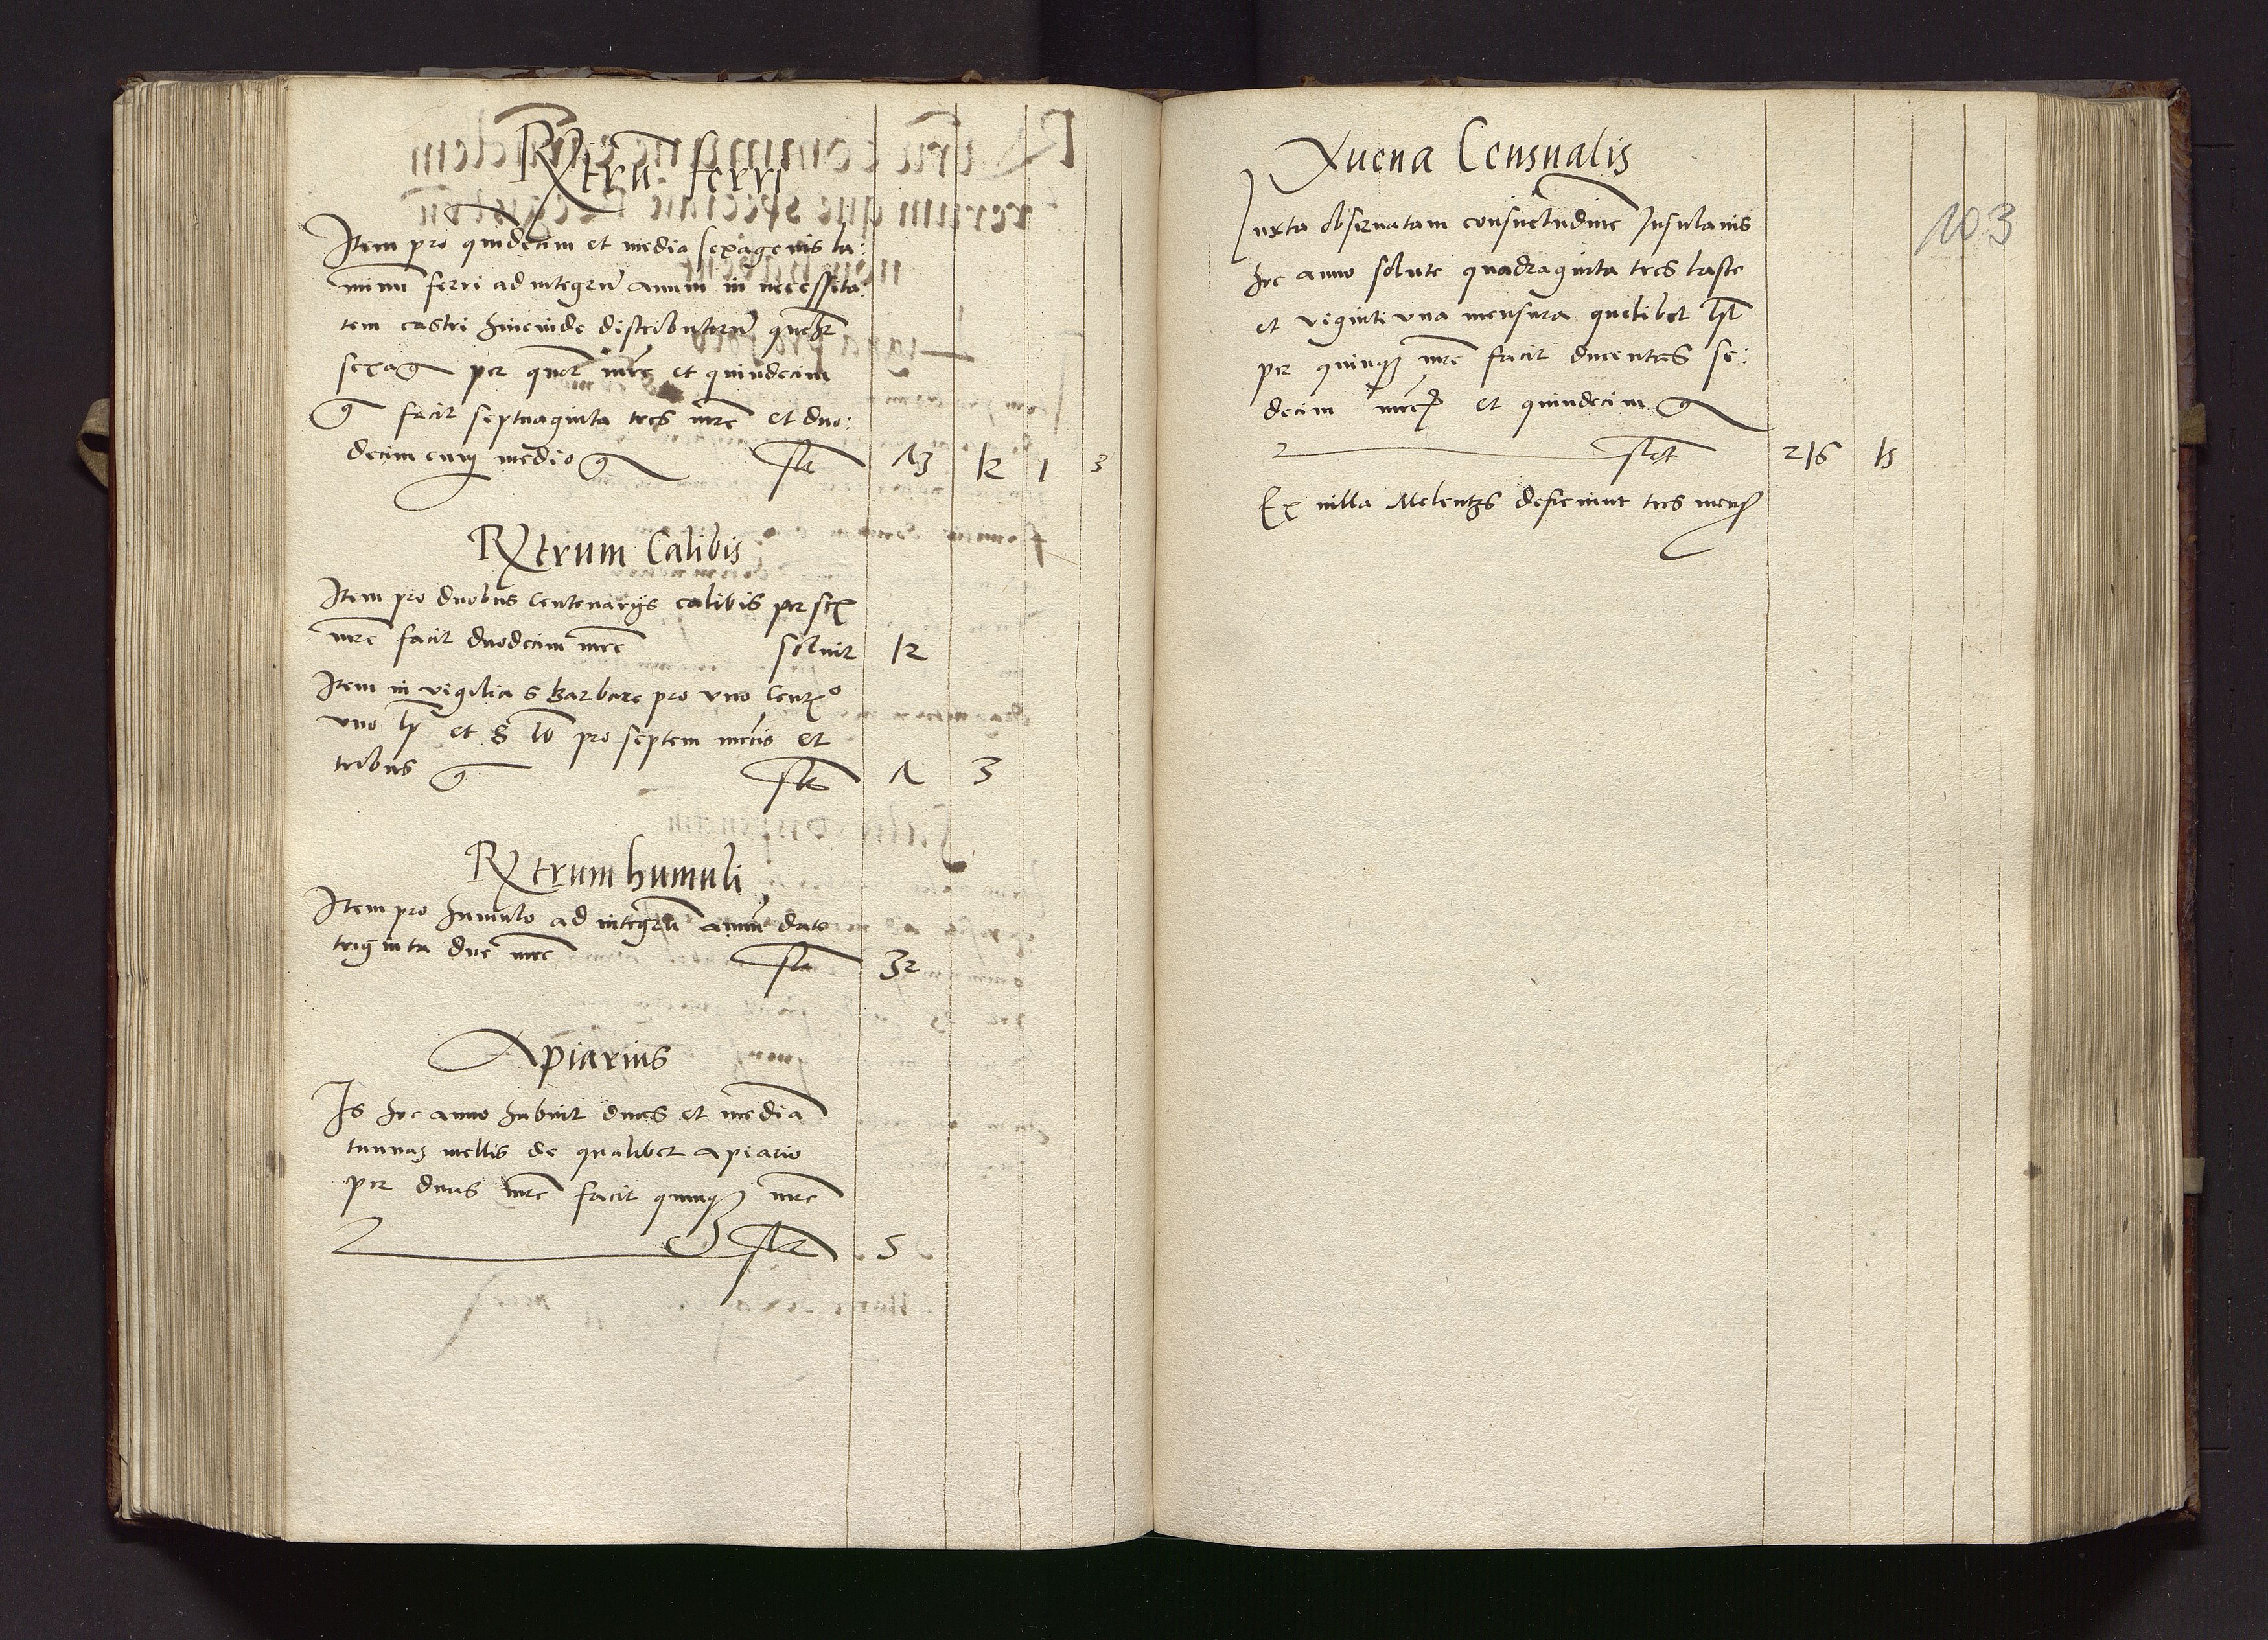 Rgtrũ ferri
Item pro quindecim et media sexagenis la:
minũ ferri ad integrũ annũ in necessita:
tem castri hincinde distributarũ quelꝫ
sexag per quor mrc et quindecim
g facit septuaginta tres mrc et duo:
decim cum medio g fct 73 12 1 3
Rgtrum Calibis
Item pro duobus Centenarijs calibis per sex
mrc facit duodecim mrc soluit 12
Item in vigilia S Barbare pro vno Centº
vno lp et 8 lb pro septem mrcis et
tribus g fct 7 3
Rgtrum humuli
Item pro humulo ad integrũ annũ dato
triginta due mrc fct 32
Apiarius
Is hoc anno habuit duas et mediã
tunnas mellis de qualibet apiario
per duas mrc facit quinqꝫ mrc
fct 5
Auena Censualis
Juxta obseruatam consuetudinē Insulanis
hoc anno solute quadraginta tres laste
et viginti vna mensura quelibet lst
per quinqꝫ mrc facit ducentas se:
decim mrc et quindecim g
fct 216 15
Ex villa Melentzs deficiunt tres mens
103